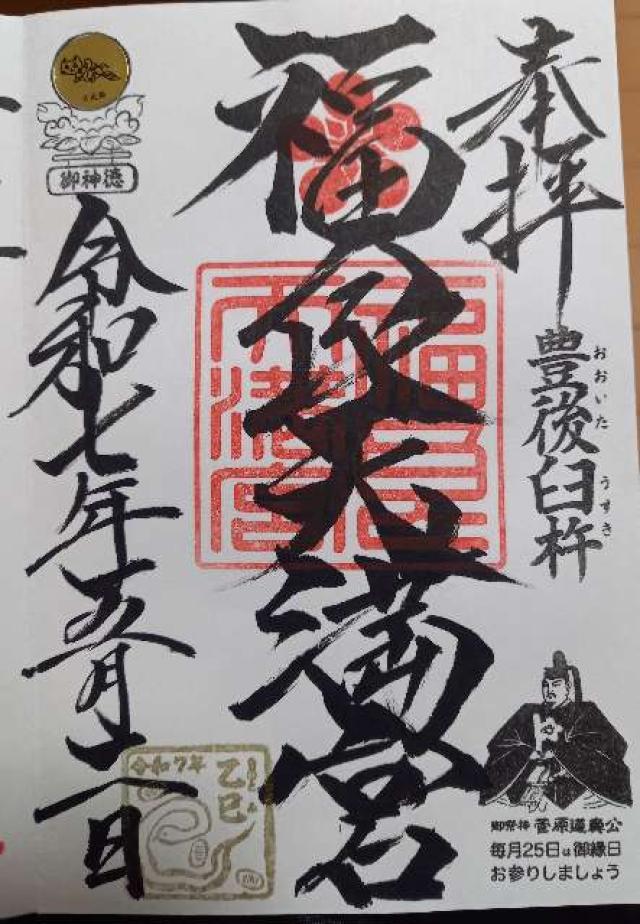 奉拝
豊後臼杵
おおいた うすき
福良天満宮
御神徳
令和七年五月十二日
令和7年
乙巳
御祭神 菅原道真公
毎月25日は御縁日
お参りしましょう